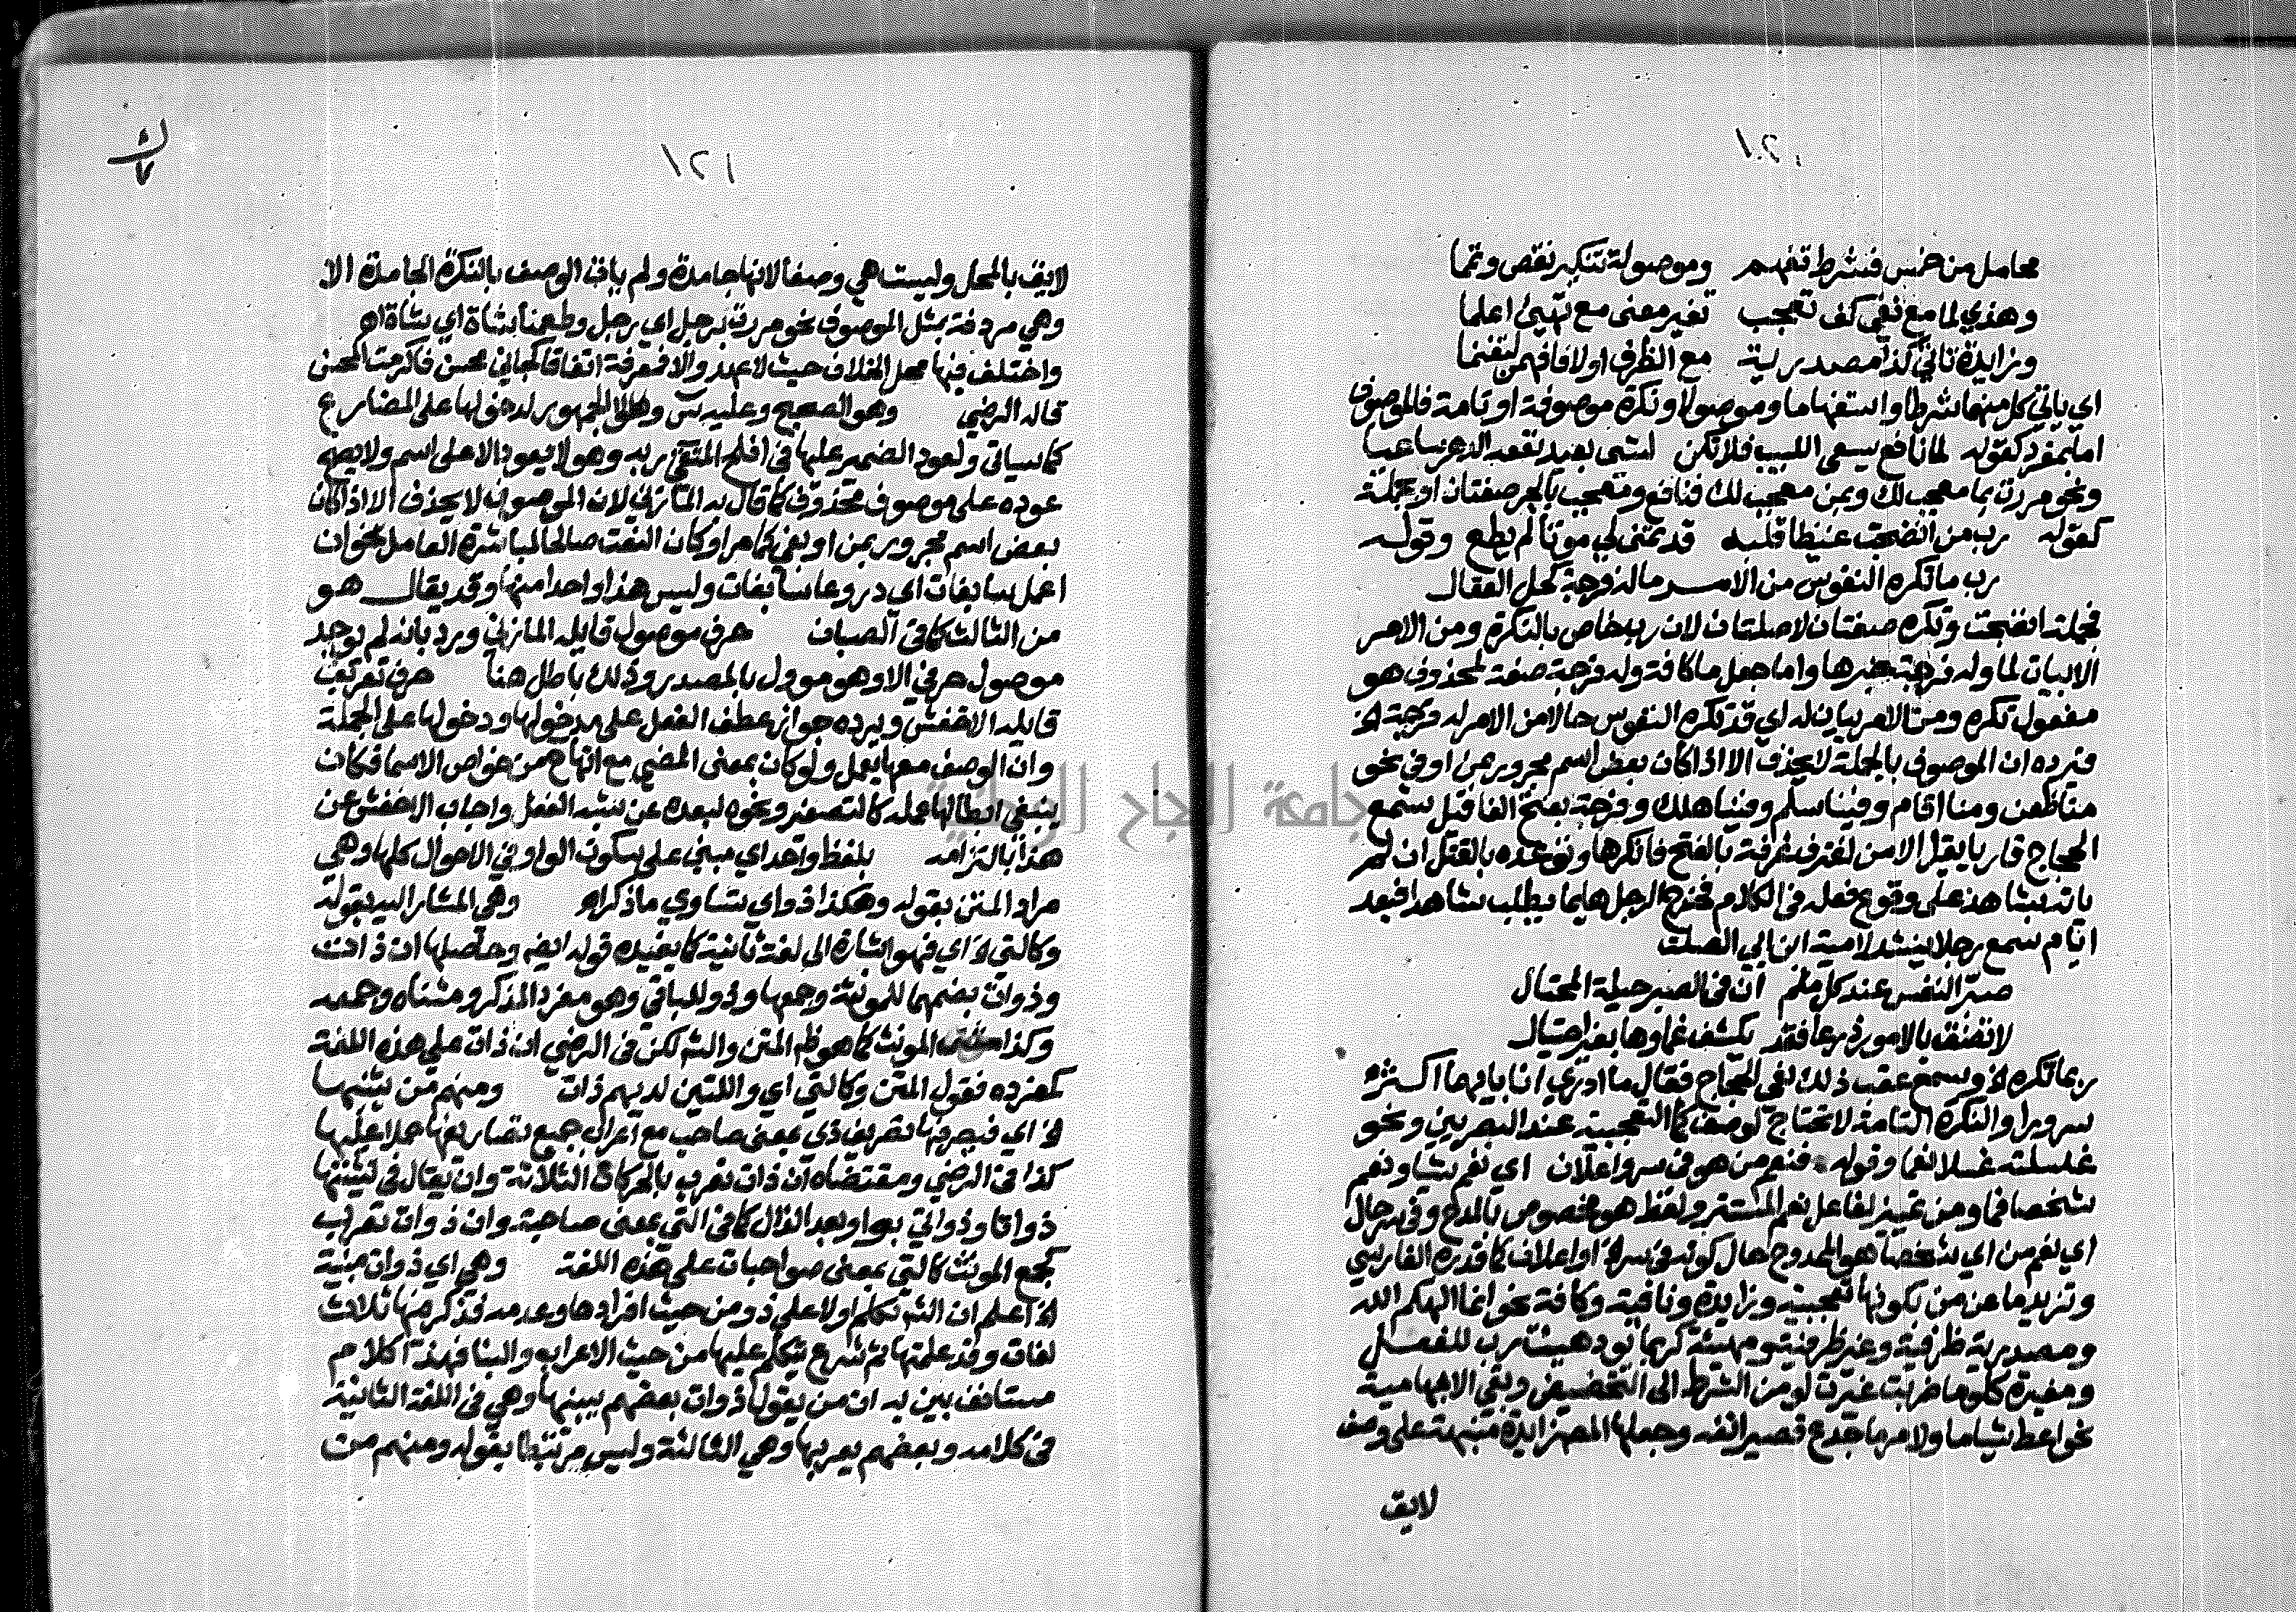 ١٢٠
محامل من خمس فشرط تفهم وموصولة تنكير نقص وتمما
وهذي لما مع نفي كف تعجب تغير معنى مع تهيئ اعلما
وزايدة تاتي كذا مصدرية مع الظرف اولا فافهمن لتغنما
اي ياتي كل منهما شرطا واستفهاما وموصولا ونكرة موصوفة او تامة فالموصوف
اما بمفرد كقوله لما نافع يسعى اللبيب فلا تكن لشى بعيد نفعه الدهر ساعيا
ونحو مررت بما معجب لك وبمن معجب لك فنافع ومعجب بالجر صفتان او بجملة
كقوله رب من انضجت غيظا قلبه قد تمنى لي موتا لم يطع وقوله
رب ما تكره النفوس من الامر ماله فرجة كحل العقال
فجملة انضجت وتكره صفتان لا صلتان لان رب خاص بالنكرة ومن الامر
الابيان لما وله فرجة خبرها واما جعل ما كافة وله فرجة صفة لمحذوف هو
مفعول تكره ومن الامر بيان له اي قد تكره النفوس حالا من الامر له فرجة الخ
فيرده ان الموصوف بالجملة لا يحذف الا اذا كان بعض اسم مجرور بمن او في نحو
منا ظعن ومنا اقام وفينا سلم وفينا هلك وفرجة بفتح الفا قيل سمع
الحجاج قاريا يقرا الا من اغترف غرفة بالفتح فانكرها وتوعده بالقتل ان لم
يات بشاهد على وقوع فعله في الكلام فخرج الرجل هايما يطلب شاهدا فبعد
ايام سمع رجلا ينشد لامية ابن ابي الصلت
صبر النفس عند كل ملم ان في الصبر حيلة المحتال
لا تضق بالامور ذرعا فقد يكشف غماوها بغير احتيال
ربما تكره الخ وسمع عقب ذلك نعي الحجاج فقال ما ادري انا بايهما اكثر
سرورا والنكرة التامة لا تحتاج لوصف كما التعجبية عند البصريين ونحو
غسلته غسلا نعما وقوله فنعم من هو في سر واعلان اي نعم شيا ونعم
شخصا فما ومن تمييز لفاعل نعم المستتر ولفظ هو مخصوص بالمدح وفي سر حال
اي نعم من اي شخصا هو الممدوح حال كونه في سر او اعلان كما قدره الفارسي
وتزيد ما عن من بكونها تعجبية وزايدة ونافية وكافة نحو انما الهكم الله
ومصدرية ظرفية وغير ظرفية ومهيئة كربما يود هيئت رب للفعل
ومغيرة كلوما ضربت غيرت لو من الشرط الى التحضيض وبقي الابهامية
نحو اعط شيا ما ولامر ما جدع قصير انفه وجعلها المص زايدة منبهة على وصف
لايق
١٢١
لايق بالمحل وليست هي وصفا لانها جامدة ولم يات الوصف بالنكرة الجامدة الا
وهي مردفة بمثل الموصوف نحو مررت برجل اي رجل وطعمنا شاة اي شاة اه
واختلف فيها محل الخلاف حيث لا عهد والا فمعرفة اتفاقا كجاني محسن فاكرمت المحسن
قاله الرضي وهو الصحيح وعليه س وكذا الجمهور لدخولها على المضارع
كما سياتي ولعود الضمير عليها في افلح المتقي ربه وهو لا يعود الا على اسم ولا يصح
عوده على موصوف محذوف كما قال به المازني لان الموصوف لا يحذف الا اذا كان
بعض اسم مجرور بمن او بفي كما مر او كان النعت صالحا لمباشرة العامل نحو ان
اعمل سابغات اي دروعا سابغات وليس هذا واحدا منها وقد يقال هو
من الثالث كما في الصبان حرف موصول قايله المازني ورد بانه لم يوجد
موصول حرفي الا وهو موول بالمصدر وذلك باطل هنا حرف تعريف
قايله الاخفش ويرده جواز عطف الفعل على مدخولها ودخولها على الجملة
وان الوصف معها يعمل ولو كان بمعنى المضي مع انها ح من خواص الاسما فكان
ينبغي ابطالها عمله كالتصغير ونحوه لبعده عن شبه الفعل واجاب الاخفش عن
هذا بالتزامه بلفظ واحد اي مبني على سكون الواو في الاحوال كلها وهي
مراد المتن بقوله وهكذا ذو اي تساوي ما ذكر اه وهي المشار اليه بقوله
وكالتي الخ اي فهو اشارة الى لغة ثانية كما يفيده قوله ايضا وحاصلها ان ذات
وذوات بضمهما للمونثة وجمعها وذو للباقي وهو مفرد المذكر ومثناه وجمعه
وكذا مثنى المونث كما هو ظم المتن والش لكن في الرضي ان ذات على هذه اللغة
كمفرده فقول المتن وكالتي اي واللتين لديهم ذات ومنهم من يثنيها
الخ اي فيصرفها تصريف ذي بمعنى صاحب مع اعراب جميع تصاريفها حملا عليها
كذا في الرضي ومقتضاه ان ذات تعرب بالحركات الثلاثة وان يقال في تثنيتها
ذواتا وذواتي بواو بعد الذال كما في التي بمعنى صاحبة وان ذوات تعرب
كجمع المونث كالتي بمعنى صواحبات على هذه اللغة وهي اي ذوات مبنية
الخ اعلم ان الش تكلم اولا على ذو من حيث افرادها وعدمه فذكر منها ثلاث
لغات وقد علمتها ثم شرع يتكلم عليها من حيث الاعراب والبنا فهذا كلام
مستانف بين به ان من يقول ذوات بعضهم يبنيها وهي في اللغة الثانية
في كلامه وبعضهم يعربها وهي الثالثة وليس مرتبطا بقوله ومنهم من
جامعة النجاح الوطنية